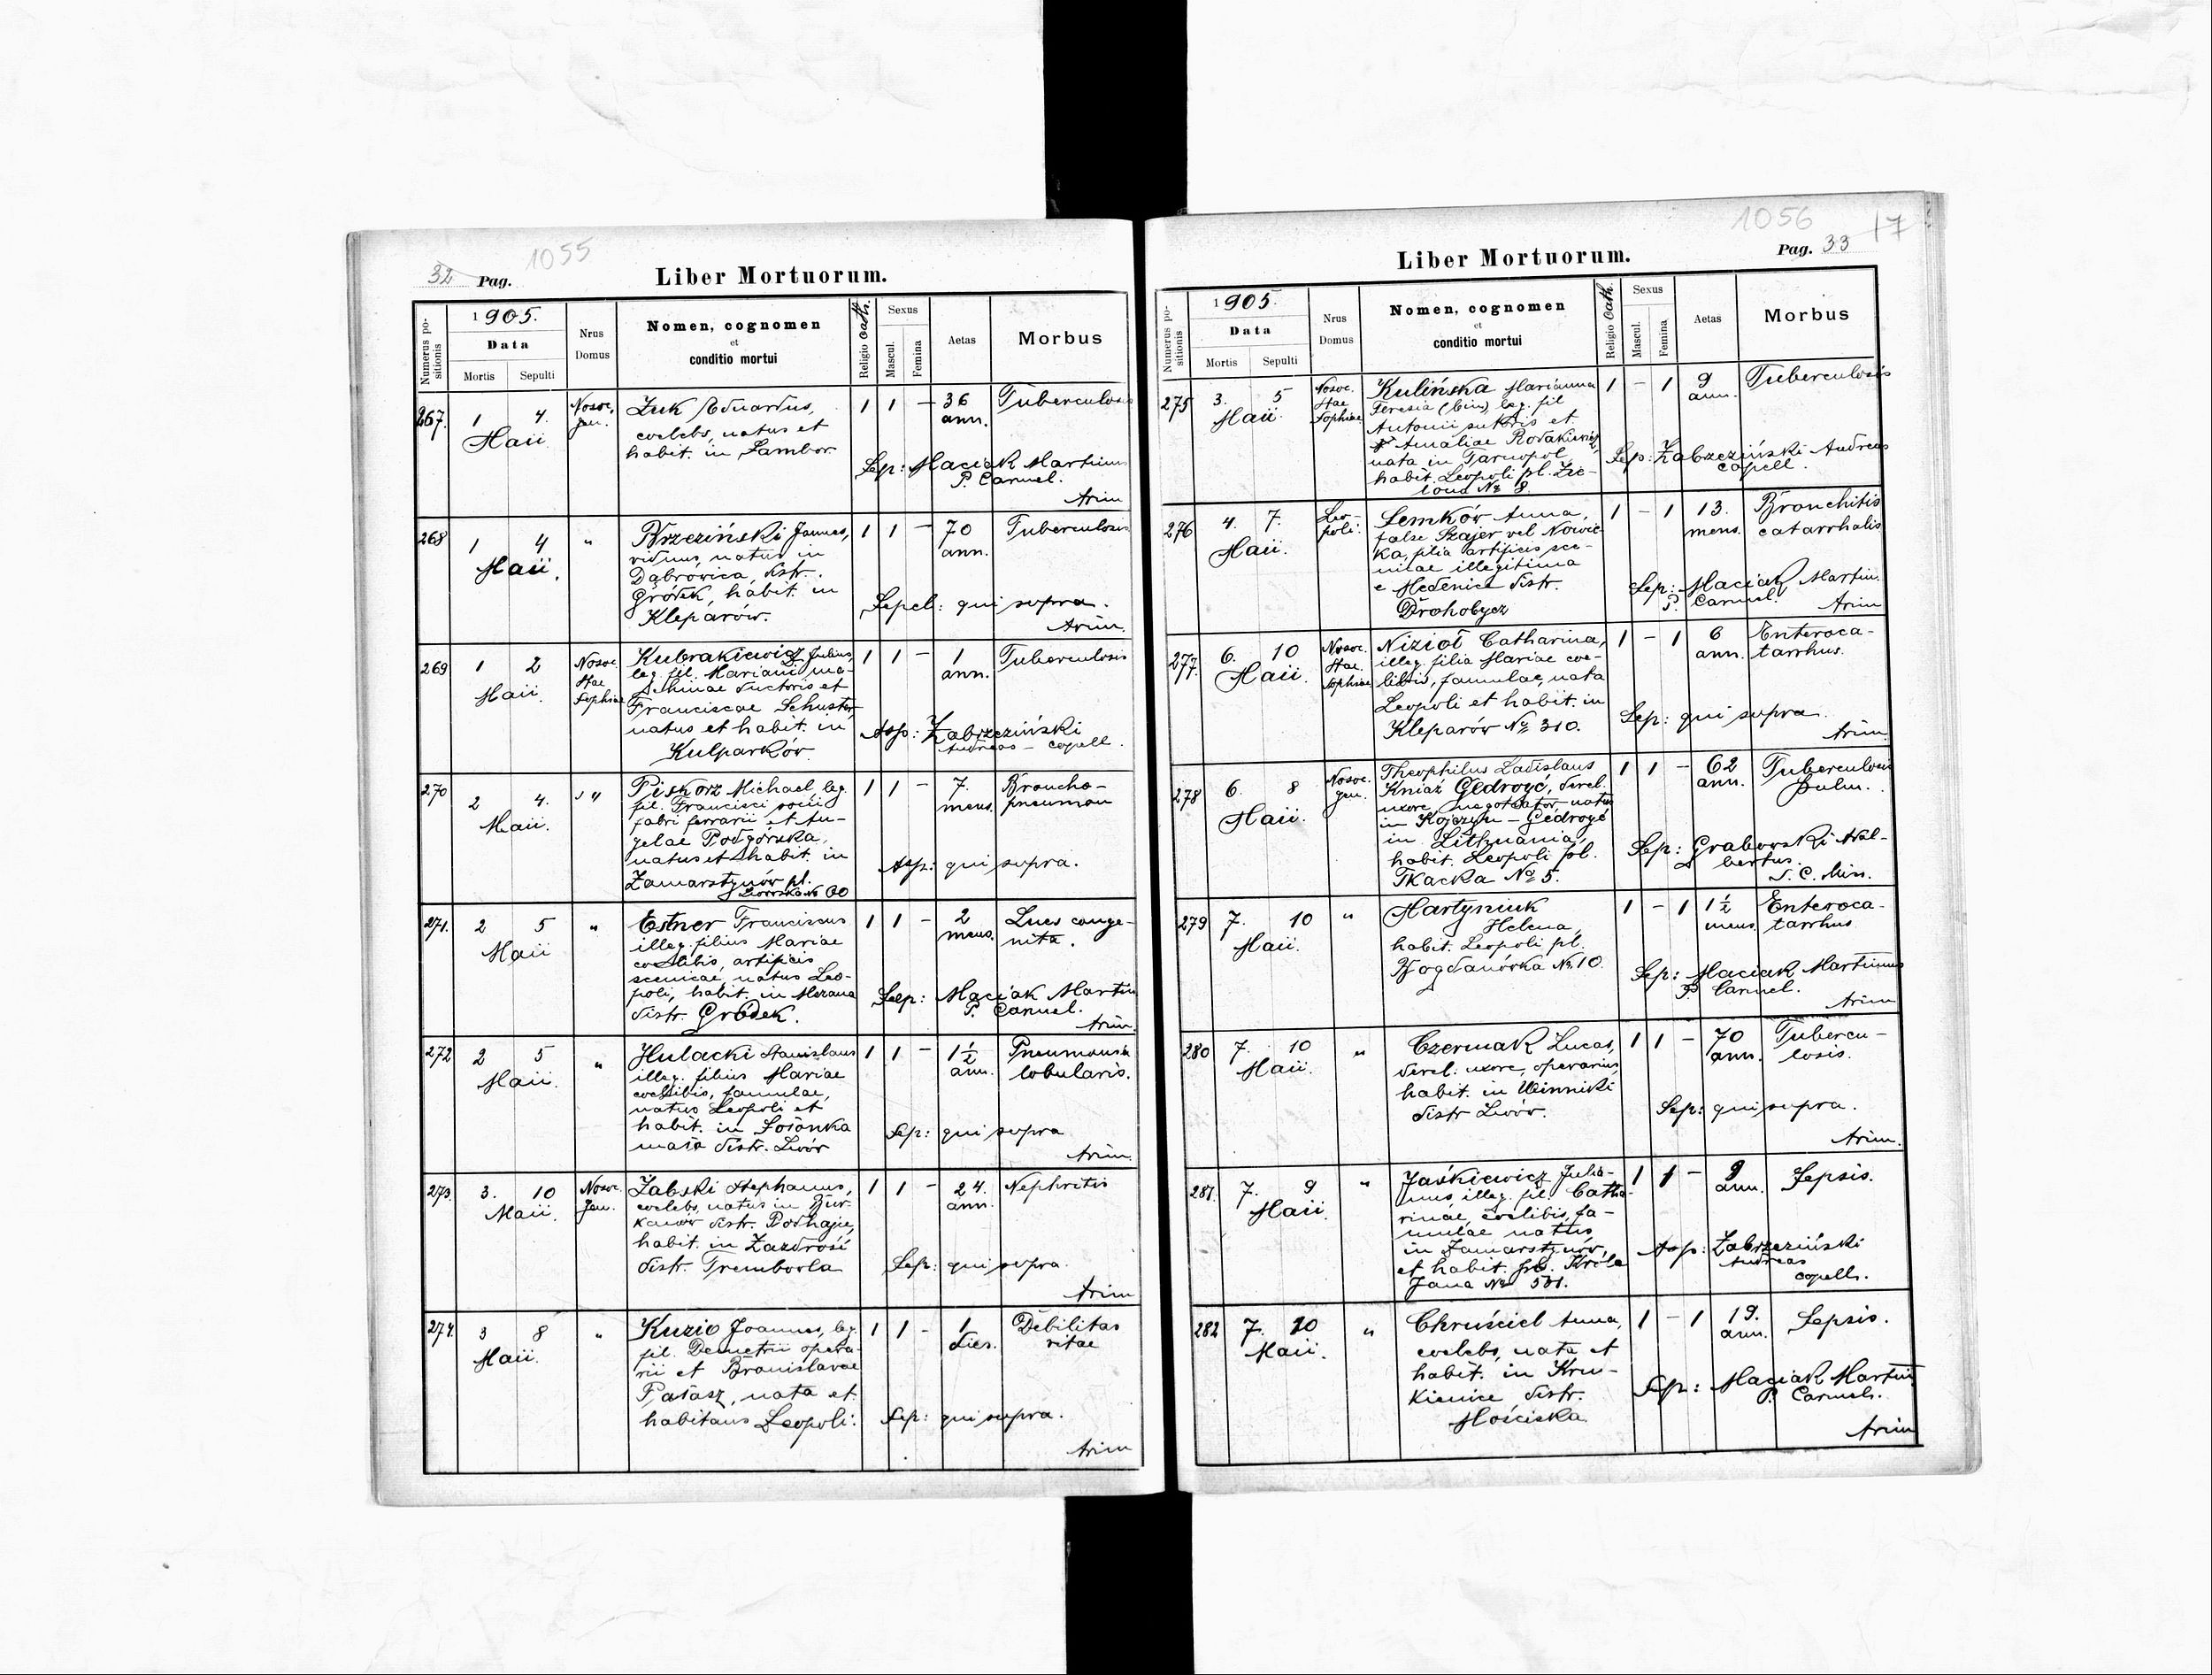 1055
32 Pag.
Liber Mortuorum.
Numerus positionis
1905.
Data
Mortis Sepulti
Nrus Domus
Nomen, cognomen
et
conditio mortui
Religio Cath.
Sexus
Mascul. Femina
Aetas
Morbus
267. 1 4. Nosoc. Żuk Eduardus, 1 1 - 36 Tuberculosis
Maii gen. coelebs, natus et ann.
habit. in Sambor
Sep: Maciak Martinus
P. Carmel.
Arim
268 1 4 " Brzeziński Joannes, 1 1 - 70 Tuberculosis
Maii. viduus, natus in ann.
Dąbrowica, distr.
Gródek, habit. in Sepel: qui supra.
Kleparów. Arim.
269 1 2 Nosoc. Kubrakiewicz Julius, 1 1 - 1 Tuberculosis
Maii. Stae leg. fil. Mariani ma- ann.
Sophiae chinae ductoris et
Franciscae Schuster,
natus et habit. in Asp: Zabrzeziński
Kulparków. Andreas - capell.
270 2 4. " Piskorz Michael, leg. 1 1 - 7. Broncho-
Maii. fil. Francisci socii mens. pneumon
fabri ferrarii et An-
gelae Podgórska,
natus et habit. in Asp: qui supra.
Zamarstynów pl.
Lwowska № 60
271. 2 5 " Estner Franciscus 1 1 - 2 Lues conge-
Maii illeg. filius Mariae mens. nita.
coelibis, artificis
scenicae, natus Leo-
poli, habit. in Mszana Sep: Maciak Martin
distr. Gródek. P. Carmel.
Arim.
272 2 5 " Hulacki Stanislaus 1 1 - 1½ Pneumonia
Maii. illeg. filius Mariae ann. lobularis.
coelibis, famulae,
natus Leopoli et
habit. in Łosonka Sep: qui supra
mała distr. Lwów Arim.
273. 3. 10 Nosoc. Żabski Stephanus, 1 1 - 24. Nephritis
Maii. Gen. coelebs, natus in ann.
distr. Podhajce,
habit. in Zazdrość
distr. Trembowla Sep: qui supra.
Arim
274. 3 8 " Kuzio Joannes, leg. 1 1 - 1 Debilitas
Maii. fil. Demetrii opera- dies. vitae
rii et Bronislavae
Pałasz, nata et
habitans Leopoli. Sep: qui supra.
Arim
1056 17
Liber Mortuorum.
Pag. 33
Numerus positionis
1905.
Data
Mortis Sepulti
Nrus Domus
Nomen, cognomen
et
conditio mortui
Religio Cath.
Sexus
Mascul. Femina
Aetas
Morbus
275 3. 5 Nosoc. Kulińska Marianna 1 - 1 9 Tuberculosis
Maii. Stae Teresia (bin) leg. fil ann.
Sophiae Antonii sutoris et
Amaliae Rodakiewicz,
nata in Tarnopol, Sep: Zabrzeziński Andreas
habit. Leopoli pl. Zie- capell.
lona № 8.
276 4. 7. Leo- Semków Anna, 1 - 1 13. Bronchitis
Maii. poli. false Szajer vel Nowic- mens. catarrhalis
ka, filia artificis sce-
nicae illegitima
e Medenice distr. Sep: Maciak Martin.
Drohobycz P. Carmel. Arim
277. 6. 10 Nosoc. Nizioł Catharina, 1 - 1 6 Enteroca-
Maii. Stae. illeg. filia Mariae coe- ann. tarrhus.
Sophiae libis, famulae, nata
Leopoli et habit. in Sep: qui supra.
Kleparów № 310. Arim.
278 6. 8 Nosoc. Theophilus Ladislaus 1 1 - 62 Tuberculosis
Maii. gen. Kniaź Gedroyć, derel. ann. pulm.
uxore, negotiator, natus
in Kojczyn - Gedroyć
in Lithuania, Sep: Grabowski Adal-
habit. Leopoli pl. bertus.
Tkacka № 5. S. C. Min.
279 7. 10 " Martyniuk 1 - 1 1½ Enteroca-
Maii. Helena, mens. tarrhus
habit. Leopoli pl.
Bogdanówka № 10. Sep: Maciak Martinus
P Carmel.
Arim
280 7. 10 " Czermak Lucas, 1 1 - 70 Tubercu-
Maii. derel. uxore, operarius, ann. losis.
habit. in Winniki
distr Lwów. Sep: qui supra.
Arim.
281. 7. 9 " Jaśkiewicz Julia- 1 1 - 9 Sepsis.
Maii. nus, illeg. fil. Catha- ann.
rinae, coelibis, fa-
mulae natus
in Zamarstynów, Asp: Zabrzeziński
et habit. pl. Króla Andreas
Jana № 501. capell.
282 7. 10 " Chruściel Anna, 1 - 1 19. Sepsis.
Maii. coelebs, nata et ann.
habit. in Kru-
kienice distr. Sep: Maciak Martin
Mościska P. Carmel.
Arim